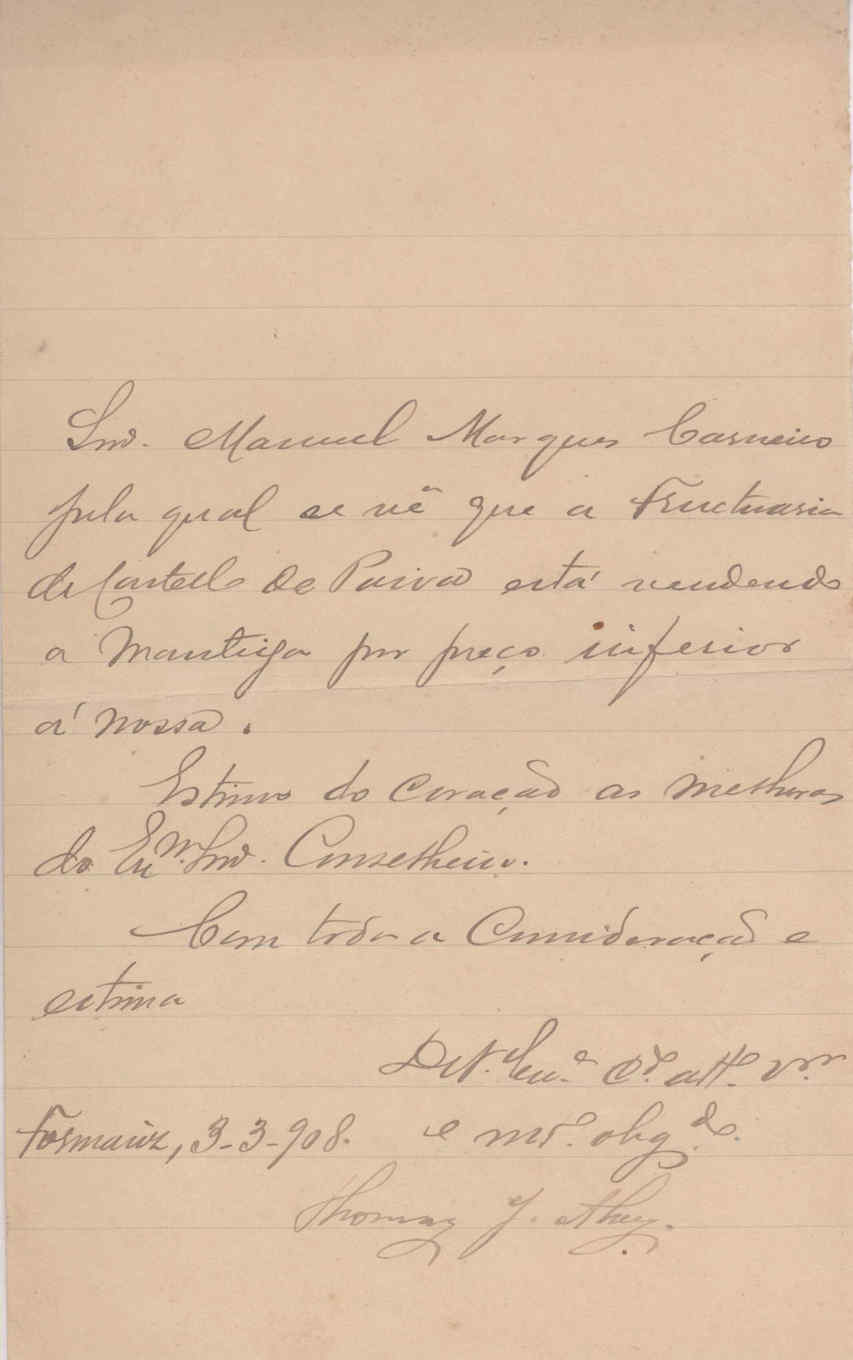 Snr. Manuel Marques Carneiro
pela qual se vê que a Fructuaria
de Castello de Paiva está vendendo
a Manteiga por preço inferior
á nossa.
Estimo do coração as melhoras
do Exm. Snr. Conselheiro.
Com toda a Consideração e
estima
De V. Exa. Cro. att. Vor
Formariz, 3-3-908. e mto. obrgdo.
Thomaz J.